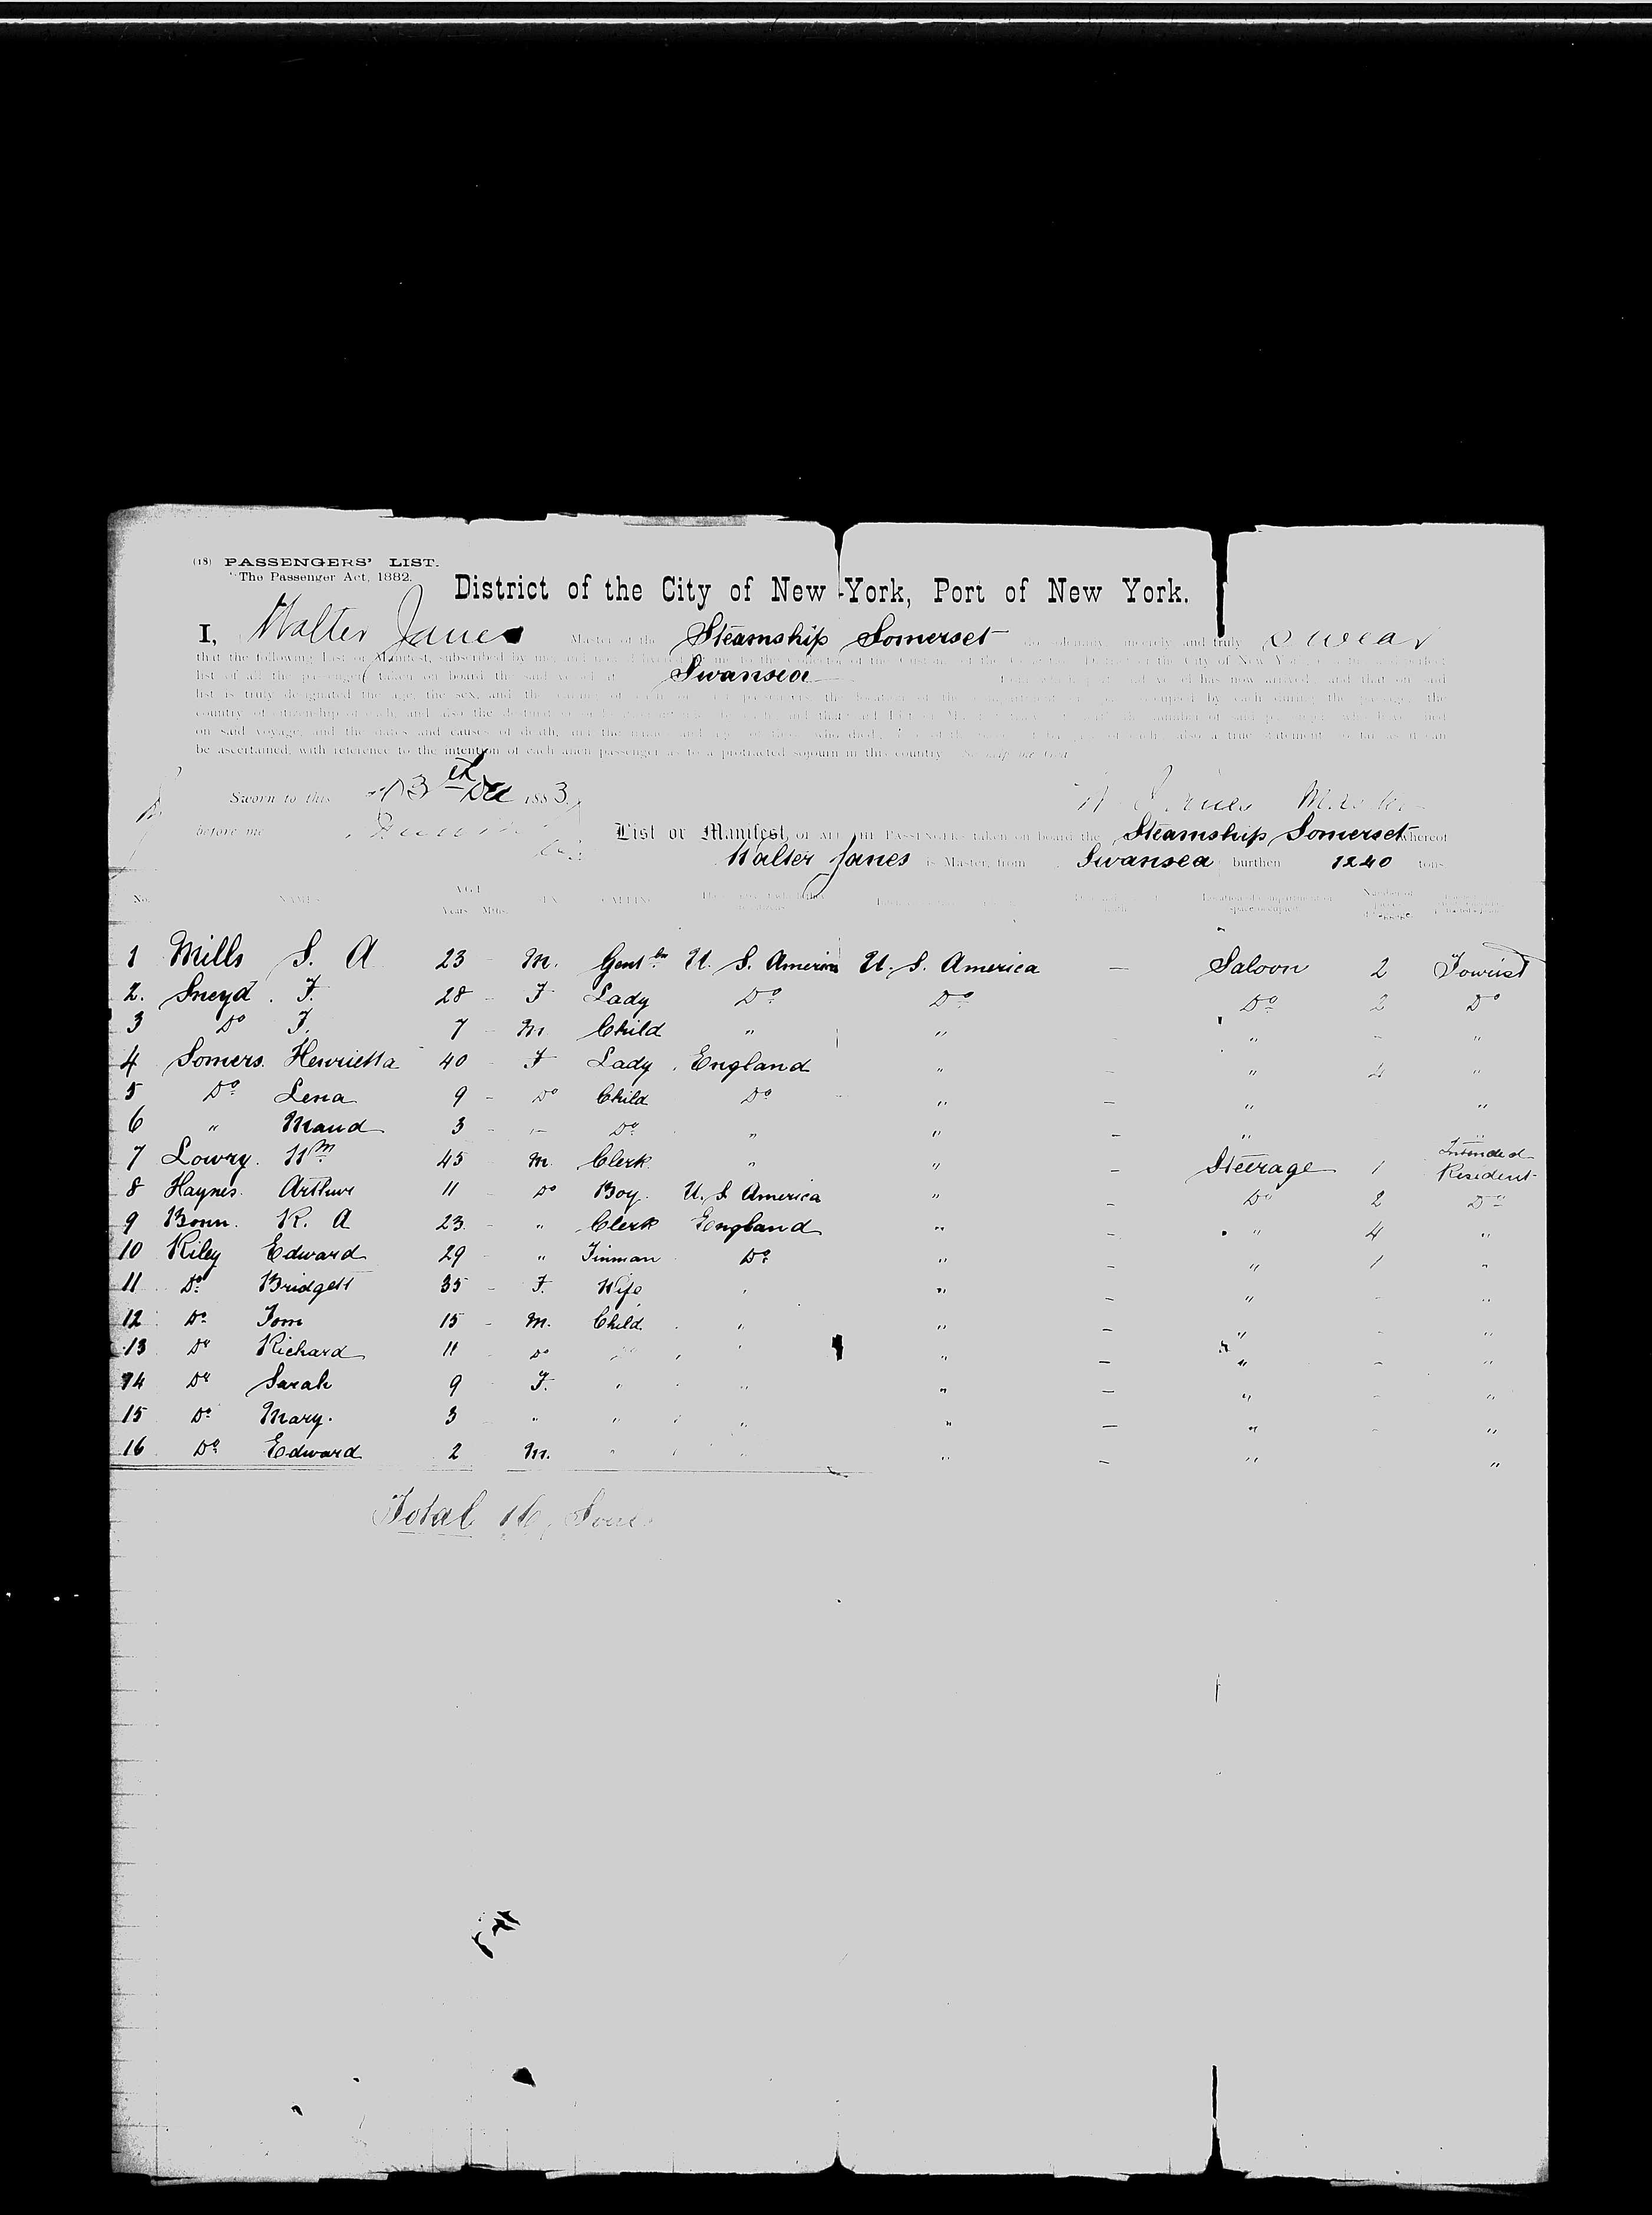 (18) PASSENGERS' LIST.
The Passenger Act, 1882.
District of the City of New York, Port of New York.
I, Walter Janes Master of the Steamship Somerset do solemnly, sincerely and truly swear
that the following List or Manifest, subscribed by me, and now delivered by me to the Collector of the Customs of the Collection District of the City of New York
list of all the passengers taken on board the said vessel at Swansea from which port said vessel has now arrived; and that on said
list is truly designated the age, the sex, and the calling of each of said passengers, the location of the occupied by each during the passage, the
country of citizenship of each, and also the destination
on said voyage, and the dates and causes of death, and the names and ages of those who died; also a true statement, so far as it can
be ascertained, with reference to the intention of each alien passenger as to a protracted sojourn in this country. So help me God.
Sworn to this 13th Dec 1883.
W Janes Master
before me
List or Manifest, OF ALL THE PASSENGERS taken on board the Steamship Somerset whereof
Walter Janes is Master, from Swansea burthen 1240 tons
No. NAMES AGE Years Mths. SEX CALLING
1 Mills S. A 23 - M. Gentln U. S. America U. S. America — Saloon 2 Tourist
2. Sneyd. F. 28 - F Lady Do Do Do 2 Do
3 Do F. 7 - M Child " " - " - "
4 Somers. Henrietta 40 - F Lady England " - " 4 "
5 Do Lena 9 - Do Child Do " - " "
6 " Maud 3 - - Do " " - " "
7 Lowry. Wm 45 - M. Clerk " " - Steerage 1 Intended Resident
8 Haynes. Arthur 11 - Do Boy. U. S. America " - Do 2 Do
9 Bonn. R. A 23. - " Clerk England " - " 4 "
10 Riley Edward 29 - " Tinman Do " - " 1 "
11 Do Bridgett 35 - F. Wife " " - " - "
12 Do Tom 15 - M. Child " " - " - "
13 Do Richard 11 - Do " " - " - "
14 Do Sarah 9 - F. " " " - " - "
15 Do Mary. 3 - " " " " - " - "
16 Do Edward 2 - M. " " " - " "
Total 16 Souls